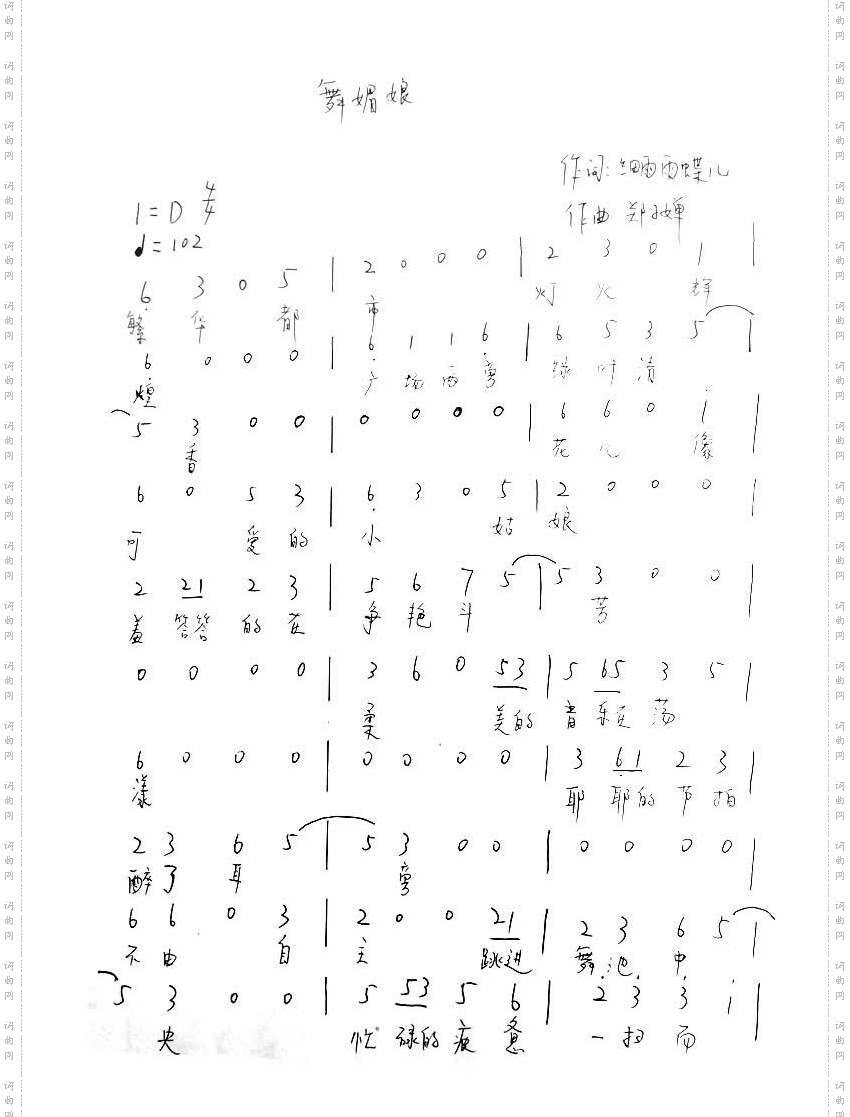 舞媚娘
作词:细雨雨蝶儿
1=D 4/4
作曲 郑婵
♩=102
6 3 0 5 | 2 0 0 0 | 2 3 0 1 |
繁 华 都 市 灯 火 辉
6 0 0 0 | 6 1 1 6 | 6 5 3 5 |
煌 广 场 两 旁 绿 叶 清
5 3 0 0 | 0 0 0 0 | 6 6 0 i |
香 花 儿 像
6 0 5 3 | 6 3 0 5 | 2 0 0 0 |
可 爱 的 小 姑 娘
2 21 2 3 | 5 6 7 5 | 5 3 0 0 |
羞 答答 的 在 争 艳 斗 芳
0 0 0 0 | 3 6 0 53 | 5 65 3 5 |
柔 美的 音 乐在 荡
6 0 0 0 | 0 0 0 0 | 3 61 2 3 |
漾 耶 耶的 节 拍
2 3 6 5 | 5 3 0 0 | 0 0 0 0 |
醉 了 耳 旁
6 6 0 3 | 2 0 0 21 | 2 3 6 5 |
不 由 自 主 跳进 舞 池 中
5 3 0 0 | 5 53 5 6 | 2 3 3 i |
央 忙 碌的 疲 惫 一 扫 而
词曲网